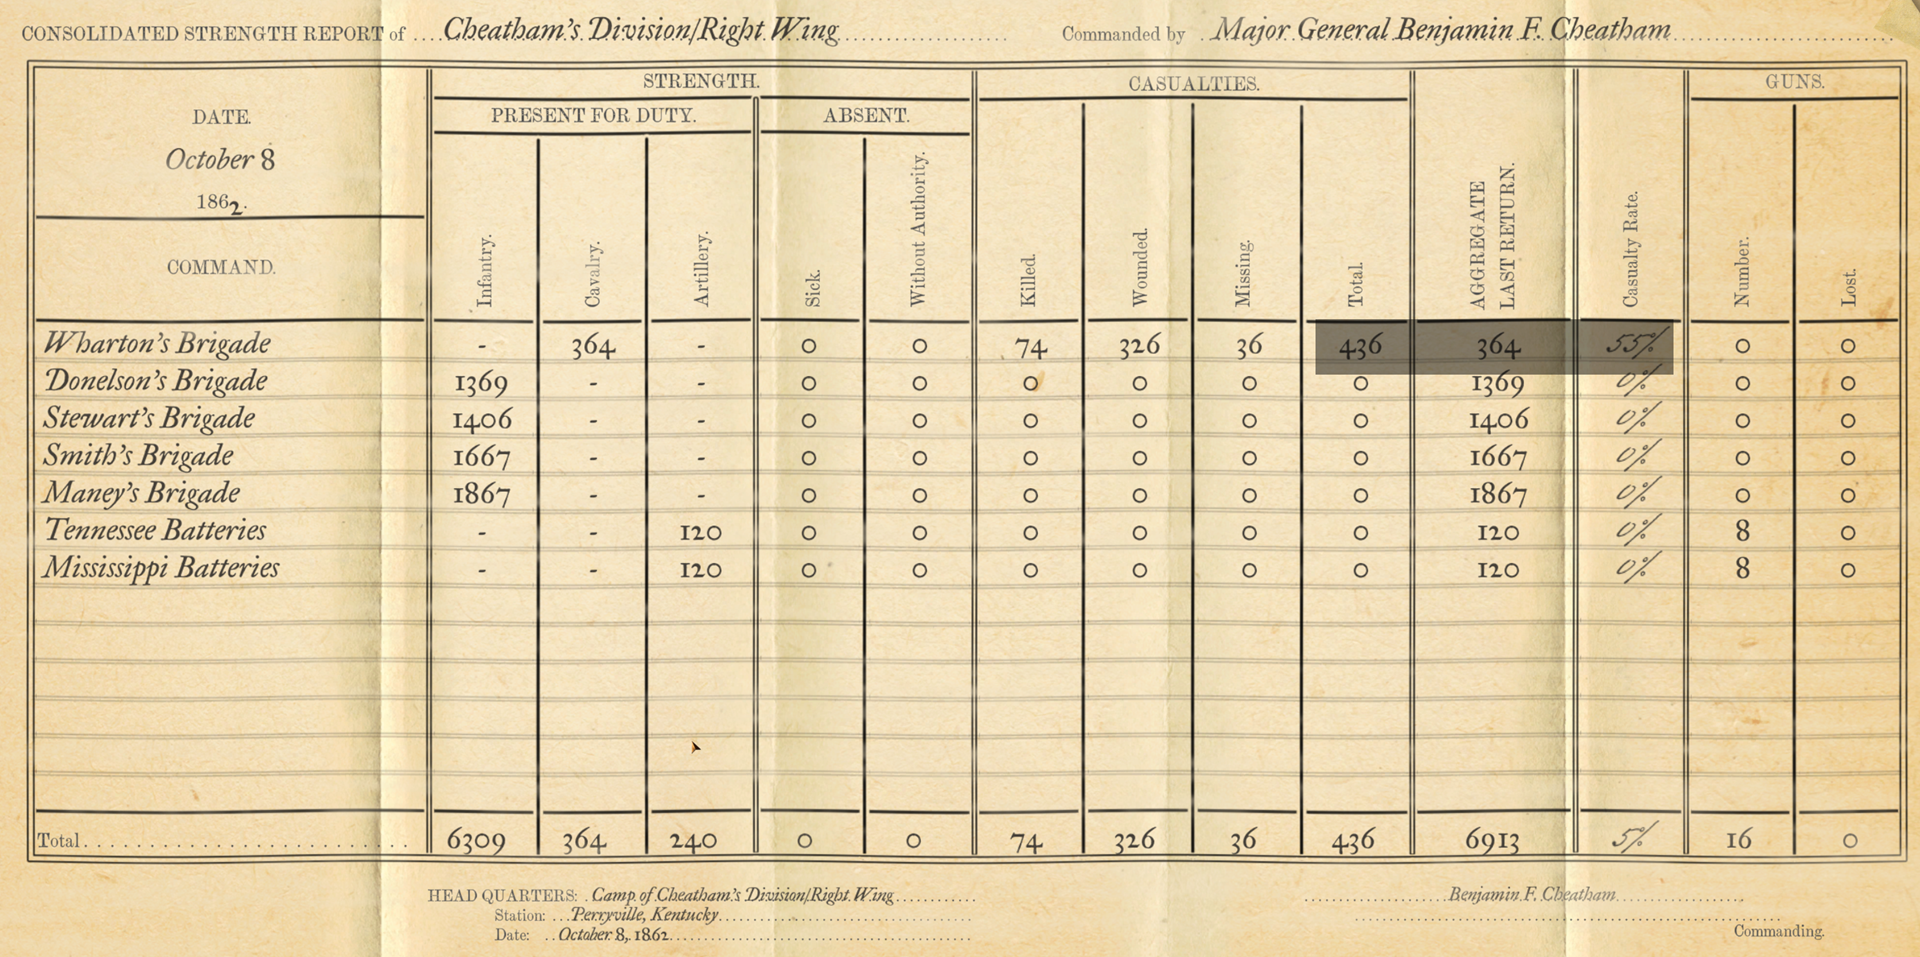 CONSOLIDATED STRENGTH REPORT of ....Cheatham's Division/Right Wing.................... Commanded by ..Major General Benjamin F. Cheatham..............................
STRENGTH. CASUALTIES. GUNS.
DATE. PRESENT FOR DUTY. ABSENT.
October 8
1862.
COMMAND. Infantry. Cavalry. Artillery. Sick. Without Authority. Killed. Wounded. Missing. Total. AGGREGATE LAST RETURN. Casualty Rate. Number. Lost.
Wharton's Brigade - 364 - 0 0 74 326 36 436 364 55% 0 0
Donelson's Brigade 1369 - - 0 0 0 0 0 0 1369 0% 0 0
Stewart's Brigade 1406 - - 0 0 0 0 0 0 1406 0% 0 0
Smith's Brigade 1667 - - 0 0 0 0 0 0 1667 0% 0 0
Maney's Brigade 1867 - - 0 0 0 0 0 0 1867 0% 0 0
Tennessee Batteries - - 120 0 0 0 0 0 0 120 0% 8 0
Mississippi Batteries - - 120 0 0 0 0 0 0 120 0% 8 0
Total.......................... 6309 364 240 0 0 74 326 36 436 6913 5% 16 0
HEAD QUARTERS: .Camp of Cheatham's Division/Right Wing............ ......................Benjamin F. Cheatham....................
Station: ...Perryville, Kentucky.....................................
Date: ..October 8, 1862............................................
Commanding.